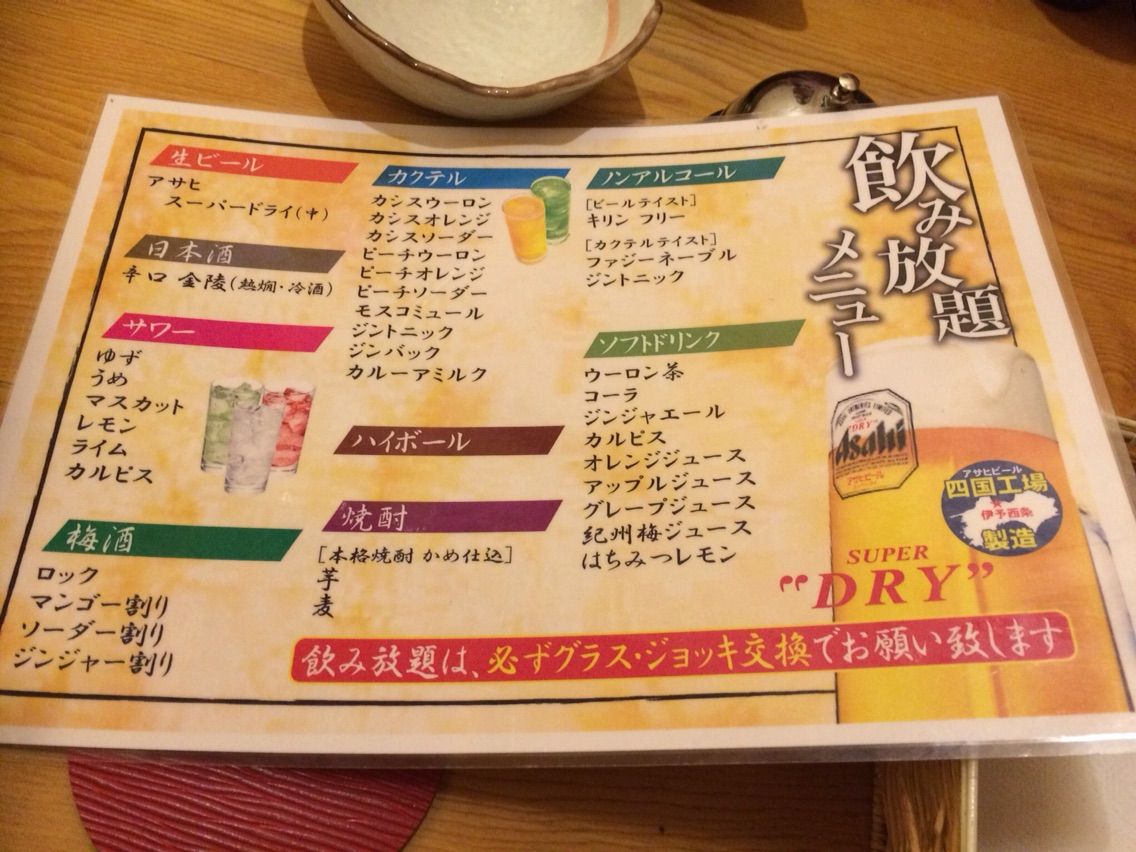 飲み放題
メニュー
生ビール
アサヒ
スーパードライ(中)
日本酒
辛口 金陵(熱燗・冷酒)
サワー
ゆず
うめ
マスカット
レモン
ライム
カルピス
梅酒
ロック
マンゴー割り
ソーダー割り
ジンジャー割り
カクテル
カシスウーロン
カシスオレンジ
カシスソーダー
ピーチウーロン
ピーチオレンジ
ピーチソーダー
モスコミュール
ジントニック
ジンバック
カルーアミルク
ハイボール
焼酎
[本格焼酎 かめ仕込]
芋
麦
ノンアルコール
[ビールテイスト]
キリン フリー
[カクテルテイスト]
ファジーネーブル
ジントニック
ソフトドリンク
ウーロン茶
コーラ
ジンジャエール
カルピス
オレンジジュース
アップルジュース
グレープジュース
紀州梅ジュース
はちみつレモン
"DRY"
Asahi
アサヒビール
アサヒビール
四国工場
伊予西条
製造
SUPER
"DRY"
飲み放題は、必ずグラス・ジョッキ交換でお願い致します